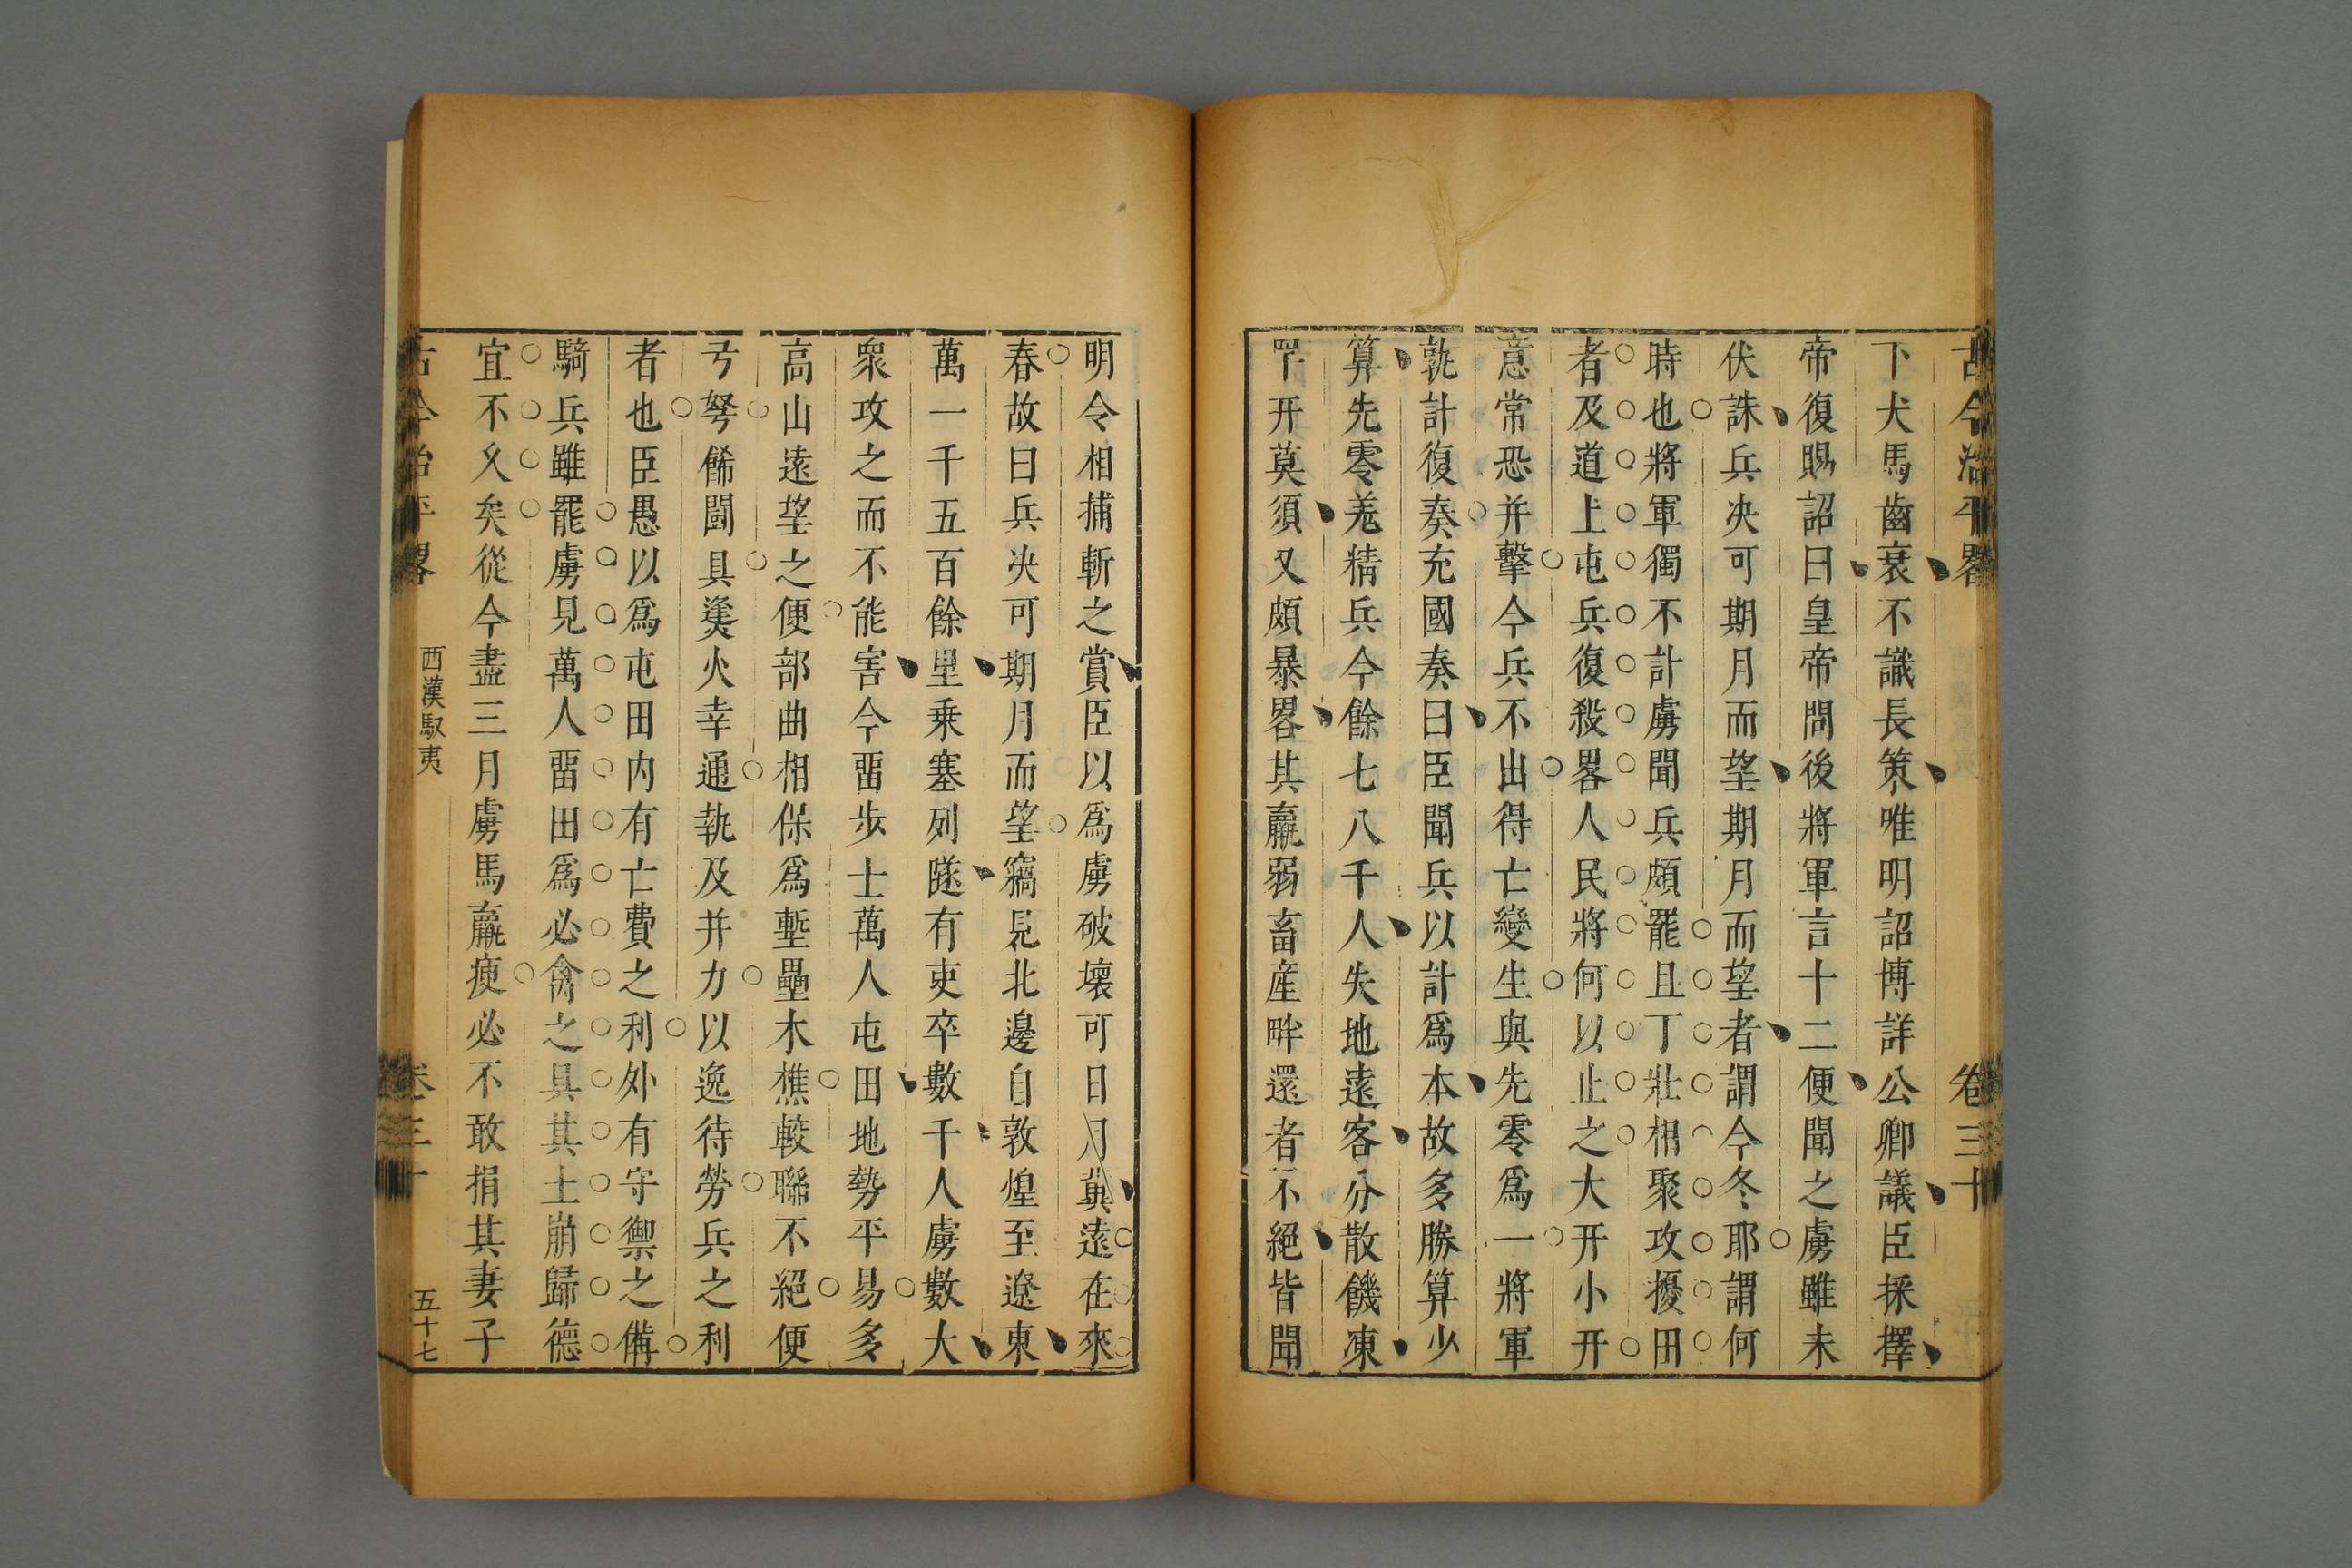 古今治平畧 卷三十
下犬馬齒衰不識長策唯明詔博詳公卿議臣採擇
帝復賜詔曰皇帝問後將軍言十二便聞之虜雖未
伏誅兵决可期月而望期月而望者謂今冬耶謂何
時也將軍獨不計虜聞兵頗罷且丁壯相聚攻擾田
者及道上屯兵復殺畧人民將何以止之大开小开
意常恐并擊今兵不出得亡變生與先零爲一將軍
孰計復奏充國奏曰臣聞兵以計爲本故多勝算少
算先零羌精兵今餘七八千人失地遠客分散饑凍
罕开莫須又頗暴畧其羸弱畜産畔還者不絕皆聞
明令相捕斬之賞臣以爲虜破壞可日月冀遠在來
春故曰兵决可期月而望竊見北邊自敦煌至遼東
萬一千五百餘里乗塞列隧有吏卒數千人虜數大
衆攻之而不能害今畱步士萬人屯田地勢平易多
高山遠望之便部曲相保爲塹壘木樵較聯不絕便
弓弩餙鬬具㷭火幸通執及并力以逸待勞兵之利
者也臣愚以爲屯田内有亡費之利外有守禦之備
騎兵雖罷虜見萬人畱田爲必禽之具其土崩歸德
宜不乆矣從今盡三月虜馬羸瘦必不敢捐其妻子
古今治平畧 西漢馭夷 卷三十 五十七